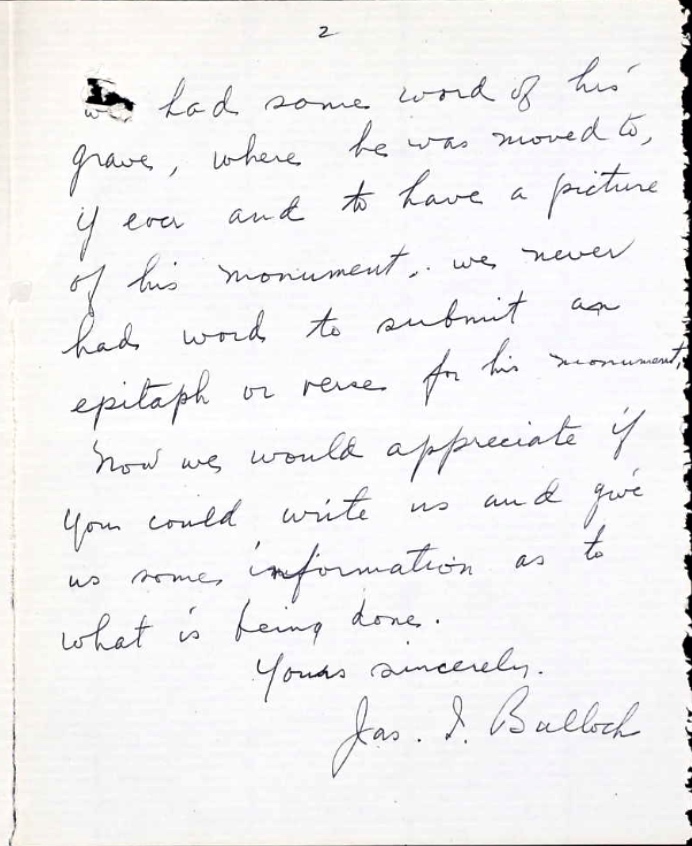 2
we had some word of his
grave, where he was moved to,
if ever and to have a picture
of his monument. we never
had word to submit an
epitaph or verse for his monument,
Now we would appreciate if
you could write us and give
us some information as to
what is being done.
Yours sincerely.
Jas. I. Bulloch